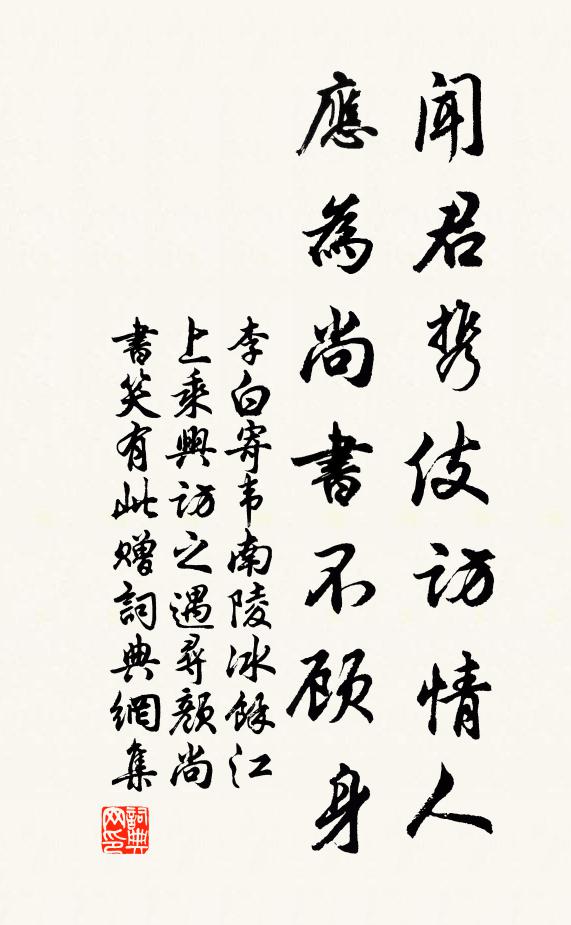 闻君携伎访情人
應為尚書不顾身
李白寄韦南陵冰餘江
上乘興访之遇尋颜尚
書笑有此赠詞典網集
詞典网印